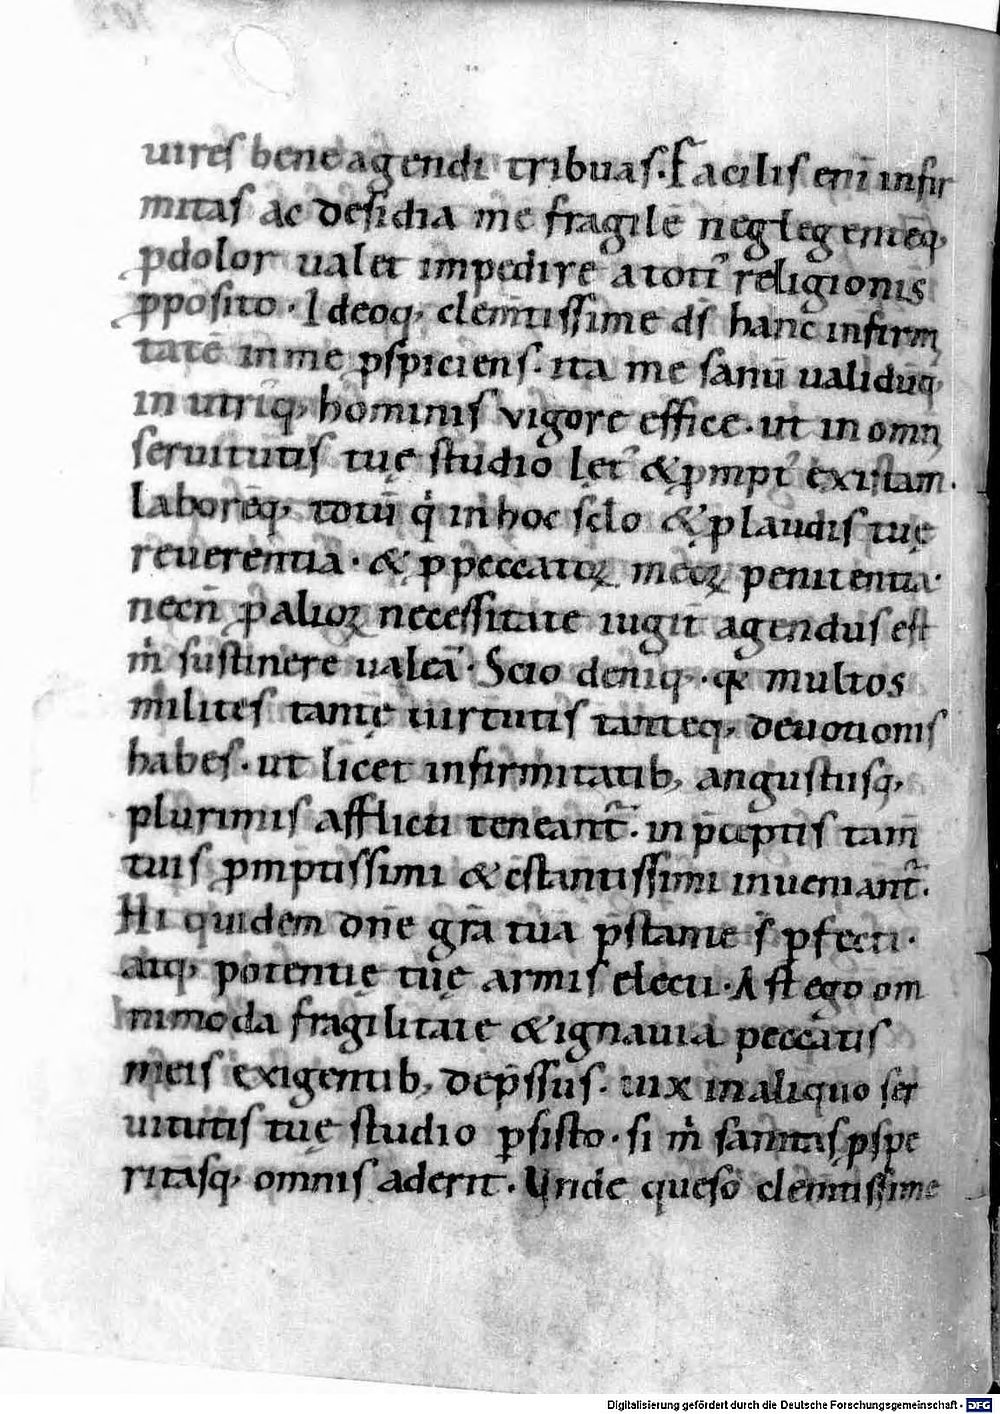 uires bene agendi tribuas. Facilis eni̅ infir
mitas ac desidia me fragile̅ neglegente̅q;
p̱dolor ualet impedire a toti᾽ religionis
p̱posito. Ideoq; clem̅tissime ds̅ hanc infirmi
tate̅ in me p̱spiciens. ita me sanu̅ ualidu̅q;
in utriq; hominis vigore effice. ut in omni
seruitutis tuę studio lęt᾽ & p̱mpt᾽ existam.
labore̅q; totu̅ q̇ in hoc sc̅lo & p̱ laudis tuę
reuerentia. & p̱ peccatoꝝ meoꝝ penitentia.
necn̅ p̱ alioꝝ necessitate iugit̅ agendus est
ṁ sustinere ualea̅. Scio deniq;. qđ multos
milites tantę uirtutis tanteq; deuotionis
habes. ut licet infirmitatib; angustiisq;
plurimis afflicti teneant᷑. in p̅ceptis tam̅
tuis p̱mptissimi & c̅stantissimi inueniant᷑.
Hi quidem dn̅e gr̅a tua p̅stante s̅ p̱fecti.
atq; potentię tuę armis electi. Ast ego om
nimoda fragilitate & ignauia peccatis
meis exigentib; dep̅ssus. uix in aliquo ser
uitutis tuę studio p̱sisto. si ṁ sanitas p̱spe
ritasq; omnis aderit. Unde queso clem̅tissime
Digitalisierung gefördert durch die Deutsche Forschungsgemeinschaft - DFG